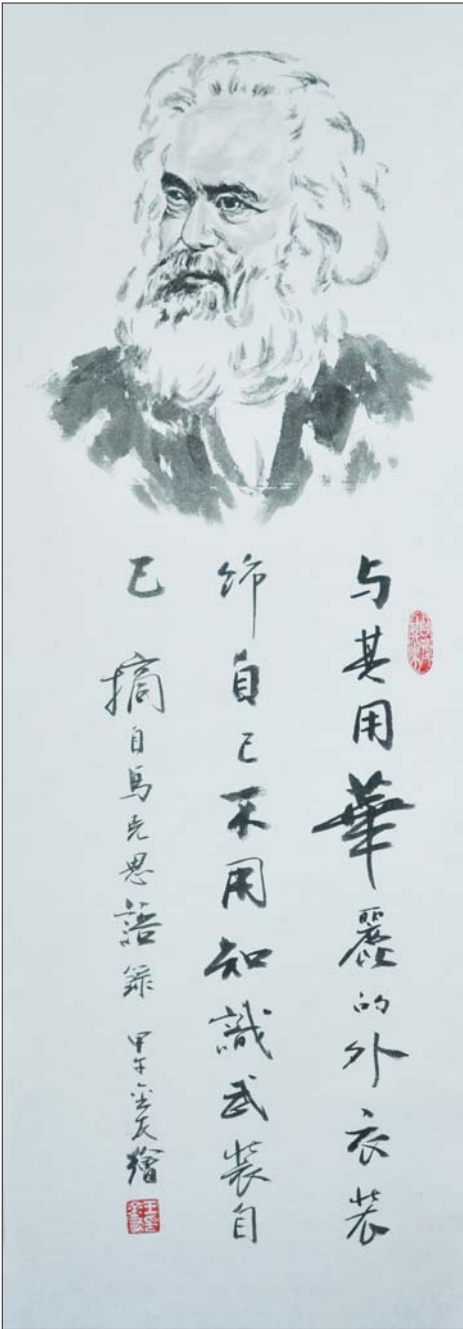 与其用華麗的外衣装
饰自己不用知識武装自
己 摘自馬克思語錄 甲午金友繪